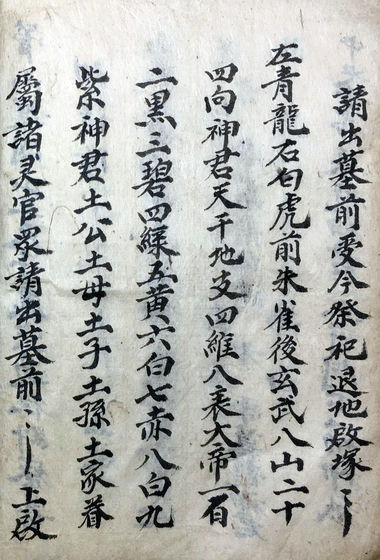 請出墓前受今祭祀退地啟塚〻
左青龍右白虎前朱雀後玄武八山二十
四向神君天干地支四維八表大帝一百
二黒三碧四綠五黄六白七赤八白九
紫神君土公土母土子土孫土家眷
屬諸灵官眾請出墓前〻上啟